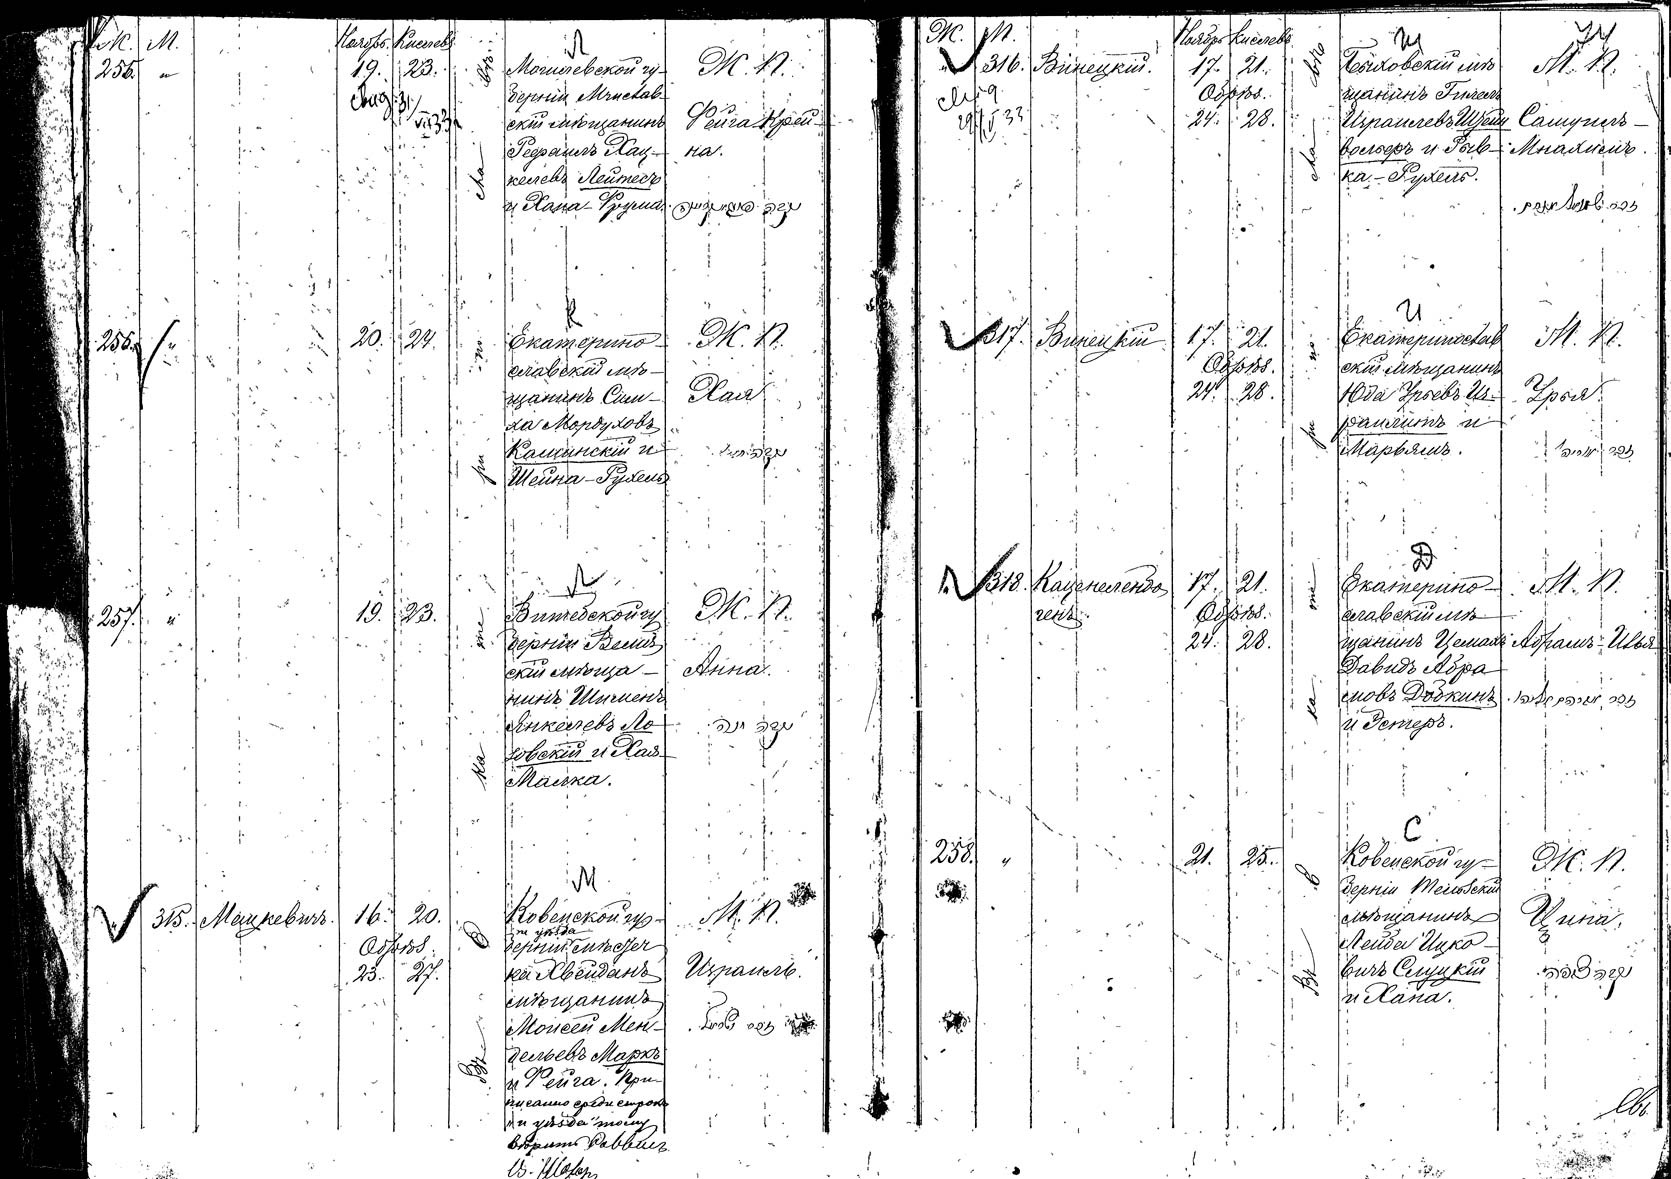 Ж. М. Ноябрь. Кислевъ
255. " 19. 23.
Свид. 31/VII 33
Л
Могилевской гу-
берніи Мстислав-
скій мѣщанинъ
Рефаилъ Хац-
келевъ Лейтесъ
и Хана-Фрума.
Ж. П.
Фейга-Крей-
на.
256. " 20. 24.
К
Екатерино-
славскій мѣ-
щанинъ Сим-
ха Мордуховъ
Каминскій и
Шейна-Рухель
Ж. П.
Хая
257. " 19. 23.
Л
Витебской гу
берніи Велиж
скій мѣща-
нинъ Шименъ
Янкелевъ Ло-
зовскій и Хая-
Малка.
Ж. П.
Анна.
315. Мацкевичъ. 16. 20.
Обрѣз.
23. 27.
М
Ковенской гу-
и уѣзда
берніи мѣстеч
ка Хвейданъ
мѣщанинъ
Моисей Мен-
дельевъ Маркъ
и Фейга. При-
писанно среди строкъ
"и уѣзда" тому
вѣрить Раввинъ
М. П.
Израиль.
Ж. М. Ноябрь Кислевъ
316. Винецкій. 17. 21.
Обрѣз.
24. 28.
Свид
29/V 33
Ш
Быховскій мѣ
щанинъ Гилель
Израилевъ
и Рыв-
ка-Рухель.
М. П.
Самуилъ-
Мнахимъ.
317. Винецкій 17. 21.
Обрѣз.
24. 28.
И
Екатеринослав
скій мѣщанинъ
Юда Урьевъ Из-
раилитъ и
Марьямъ.
М. П.
Урья.
זכר אוריה
318. Каценеленбо
генъ. 17. 21.
Обрѣз.
24. 28.
Д
Екатерино-
славскій мѣ-
щанинъ Цемахъ
Давидъ Абра
мовъ Добкинъ
и Эстеръ.
М. П.
Абрамъ-Илья
זכר אברהם אליהו
258. " 21. 25.
С
Ковенской гу-
берніи Тельскій
мѣщанинъ
Лейба Ицко-
вичъ Слуцкій
и Хана.
Ж. П.
Ципа.